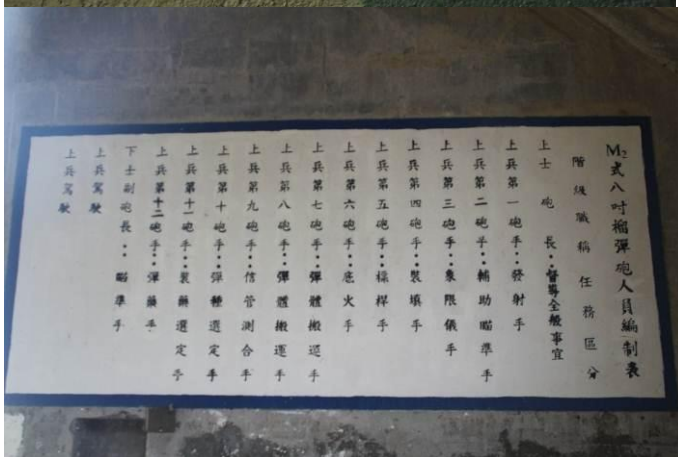 M2式八吋榴彈砲人員編制表
階級職稱 任務區分
上士砲長：督導全般事宜
上兵第一砲手：發射手
上兵第二砲手：輔助瞄準手
上兵第三砲手：象限儀手
上兵第四砲手：裝填手
上兵第五砲手：桿桿手
上兵第六砲手：底火手
上兵第七砲手：彈體搬運手
上兵第八砲手：彈體搬運手
上兵第九砲手：信管測合手
上兵第十砲手：彈種選定手
上兵第十一砲手：裝藥選定手
上兵第十二砲手：彈藥手
下士副砲長：瞄準手
上兵駕駛
上兵駕駛